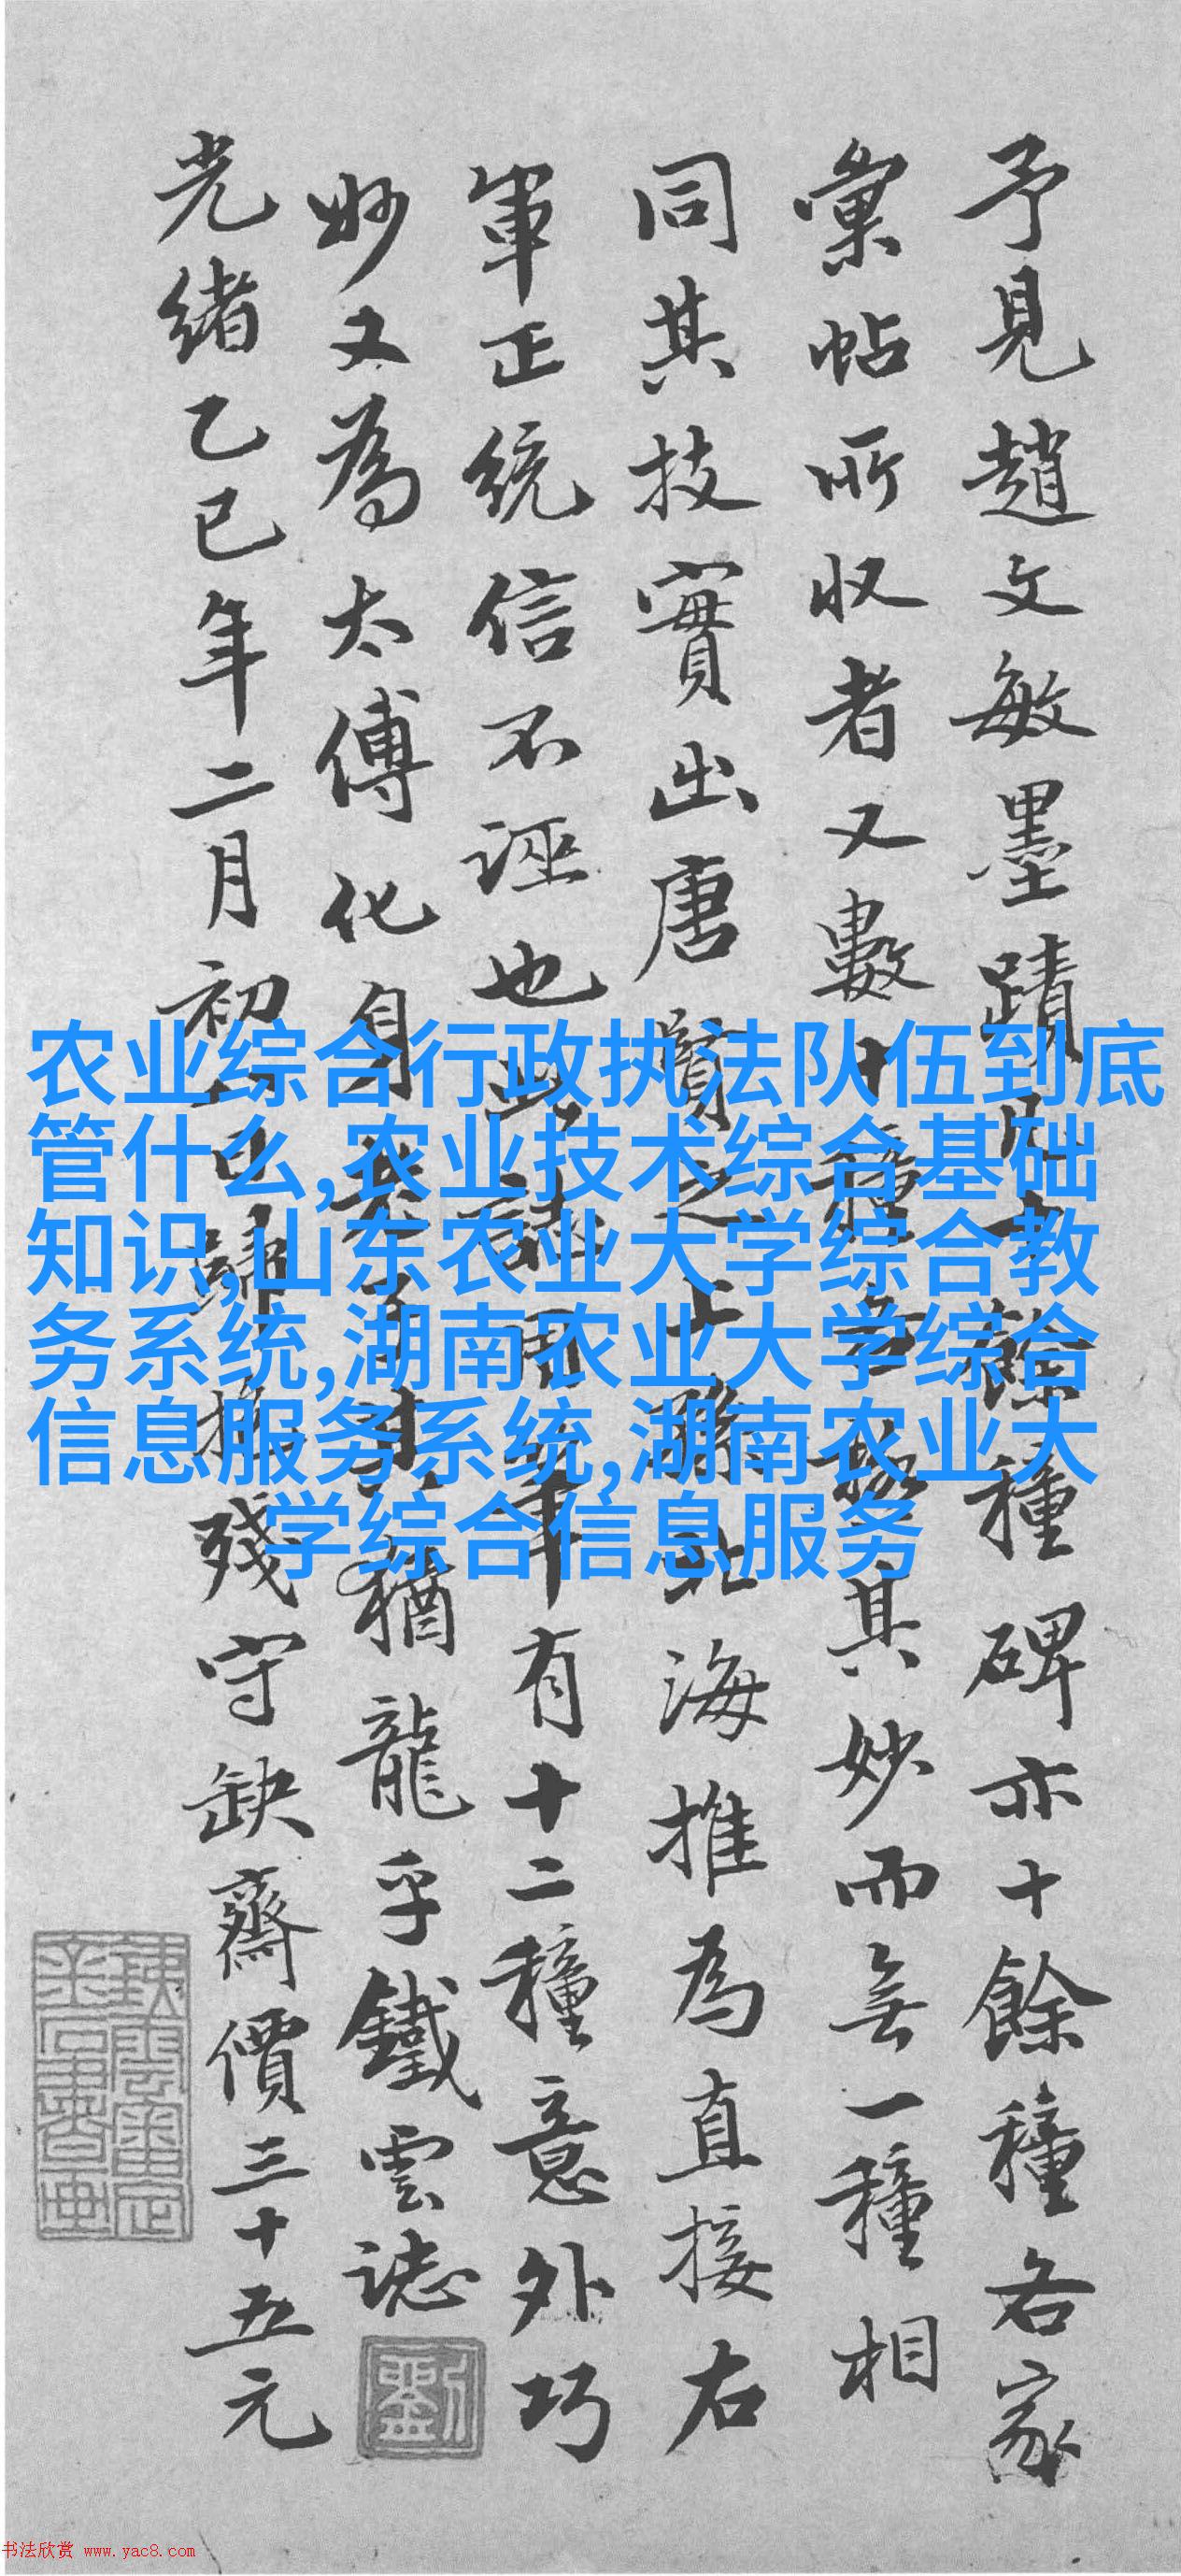 予見趙文敏墨蹟凡十餘種碑亦十餘種各家
彙帖所收者又數十種各極其妙而無一種相
同其技實出唐賢之上孫北海推為直接右
軍正統信不誣也此用筆有十二種意外巧
妙又為太傅化身老子其猶龍乎鐵雲誌
劉
光緒乙巳年二月初一日歸抱殘守缺齋價三十五元
鐵雲審定
金石書畫
农业综合行政执法队伍到底
管什么,农业技术综合基础
知识,山东农业大学综合教
务系统,湖南农业大学综合
信息服务系统,湖南农业大
学综合信息服务
书法欣赏 www.yac8.com